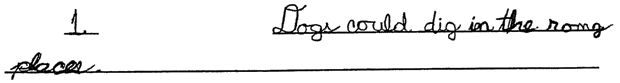 1. Dogs could dig in the rong
places.